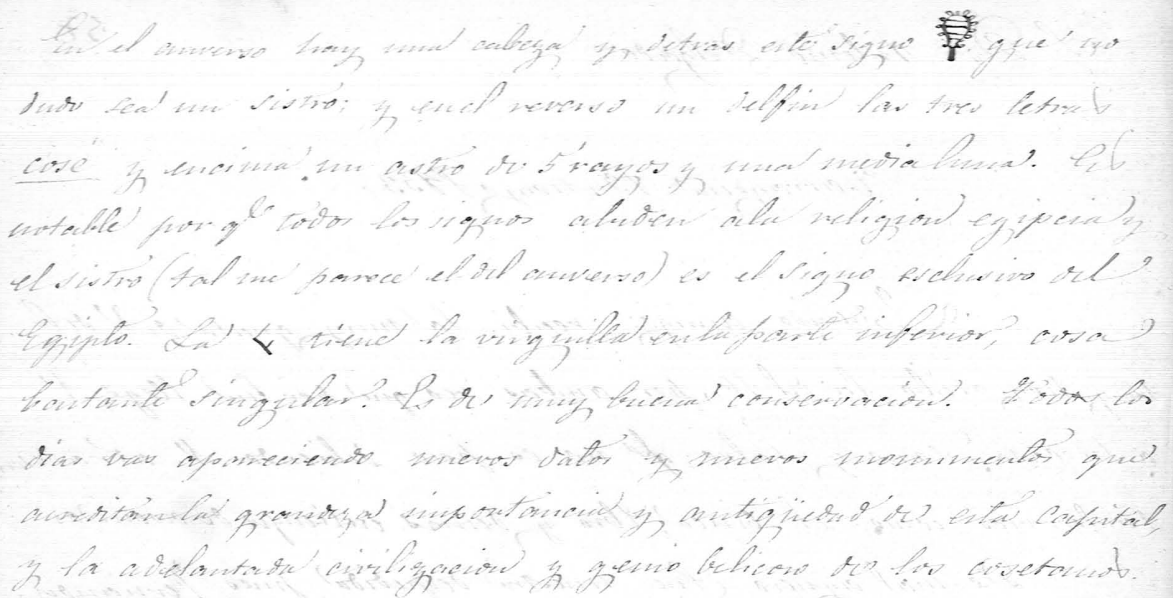 En el anverso hay una cabeza y detras este signo que no
dudo sea un sistro: y en el reverso un delfin las tres letras
cosé y encima un astro de 5 rayos y una media luna. Es
notable por qe todos los signos aluden a la religion egipcia y
el sistro (tal me parece el del anverso) es el signo esclusivo del
Egipto. La tiene la virguilla en la parte inferior, cosa
bastante singular. Es de muy buena conservacion. Todos los
dias van apareciendo nuevos datos y nuevos monumentos que
acreditan la grandeza importancia y antigüedad de esta capital,
y la adelantada civilizacion y genio bélicoso de los cosetanos.